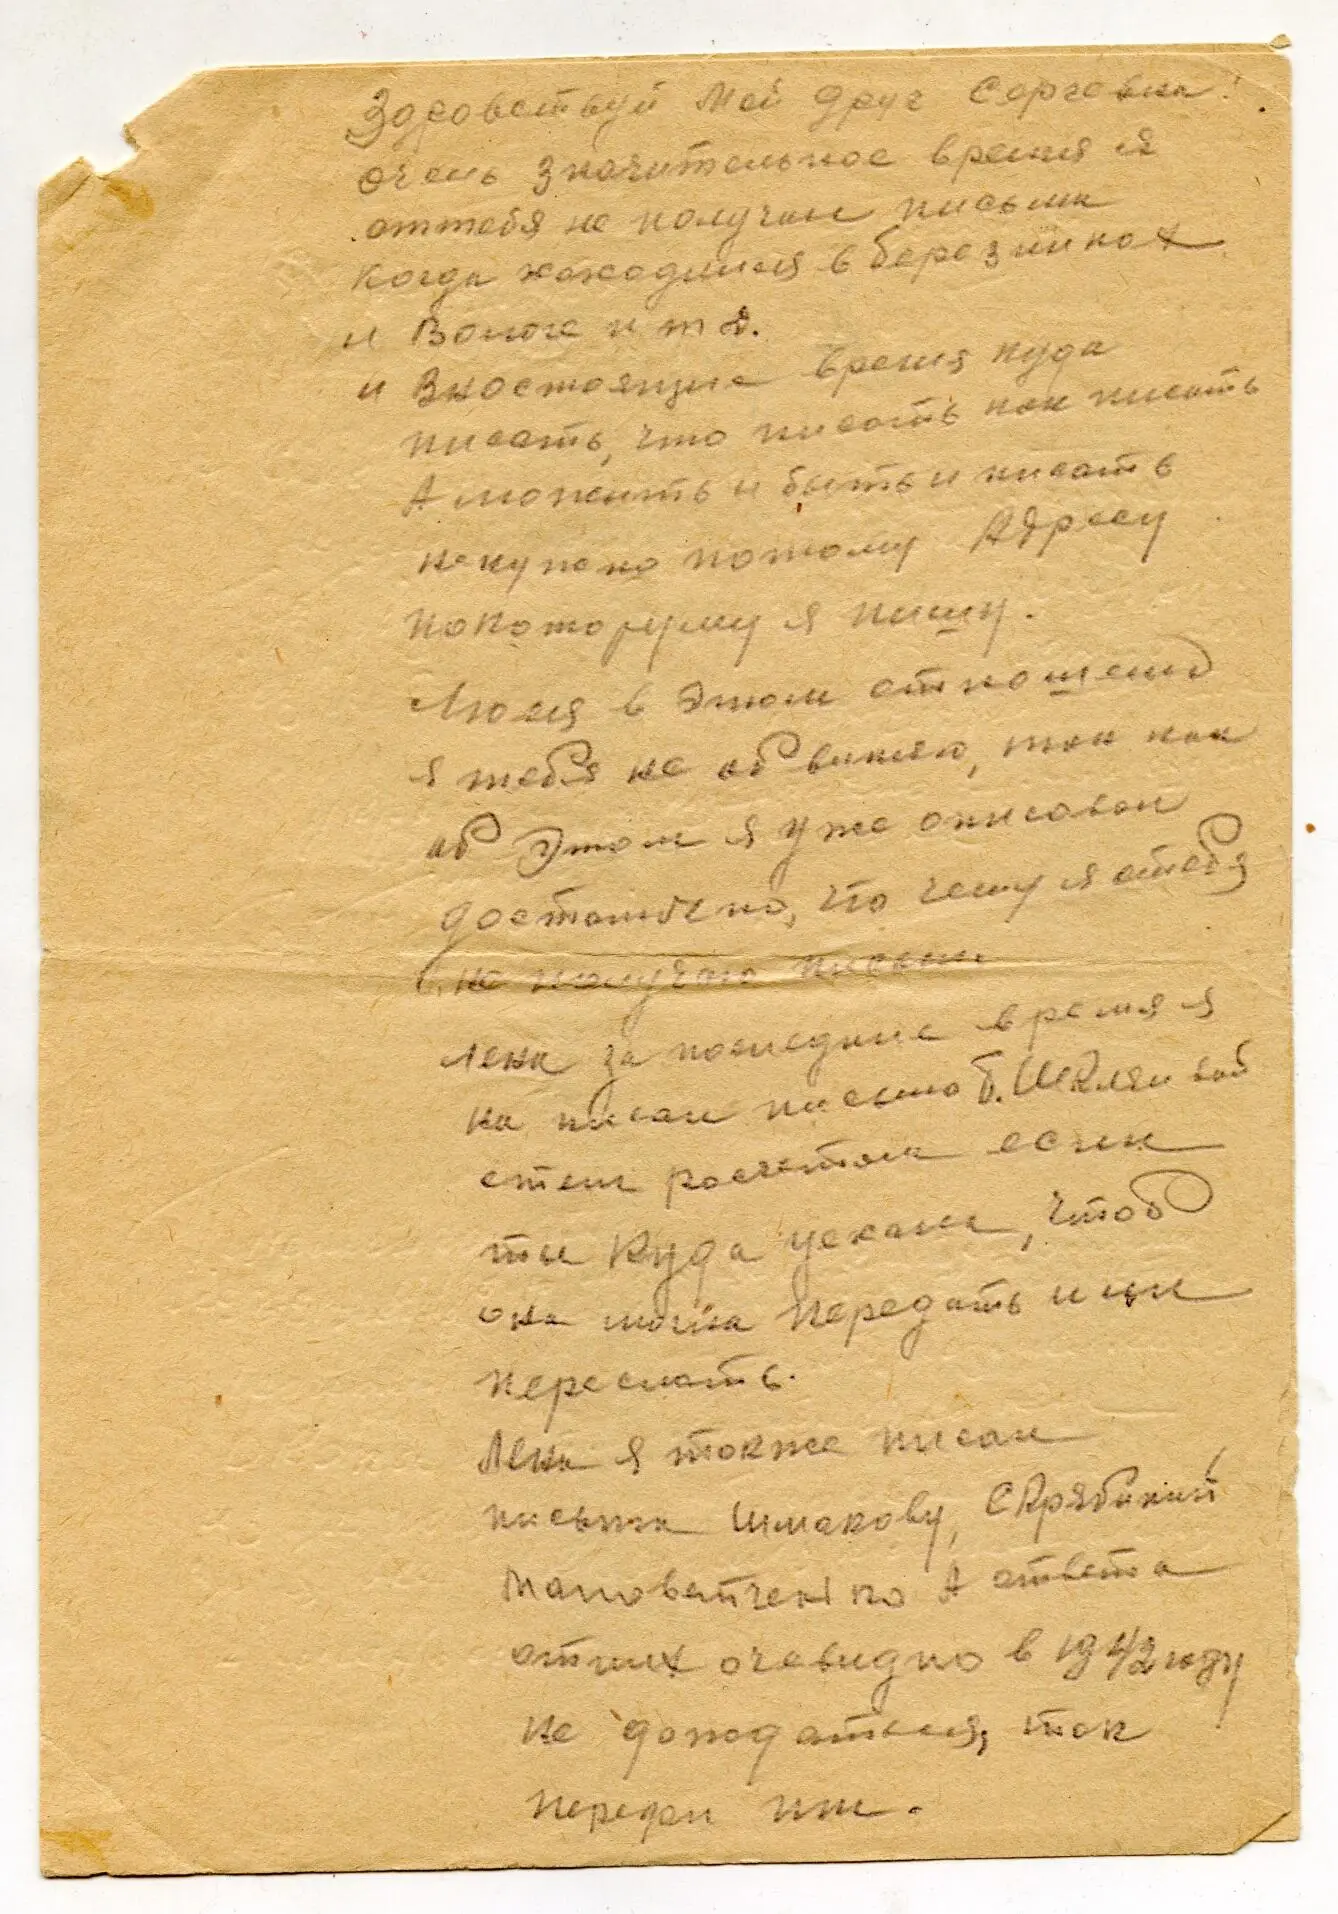 Здравствуй Мой друг Сергевна!
очень значительное время я
оттебя не получал письма
когда находился в березниках
и Вологе и т д.
и Внастоящие время куда
писать, что писать как писать
Аможить и быть и писать
некупено потому Адресу
покоторуму я пишу.
Люся в этом отношении
я тебя не обвиняю, так как
об этом я уже описовал
достаточно, что чему я отебя
не получаю письма
Лена за последние время я
на писал письмо Б. Шкляевой
стем расчетом если
ты Куда уехала, чтоб
она могла передать или
переслать.
Лена я также писал
письма Шмакову, Скрябиной
А ответа
отних очевидно в 1942 году
не дождаться, так
передай им.